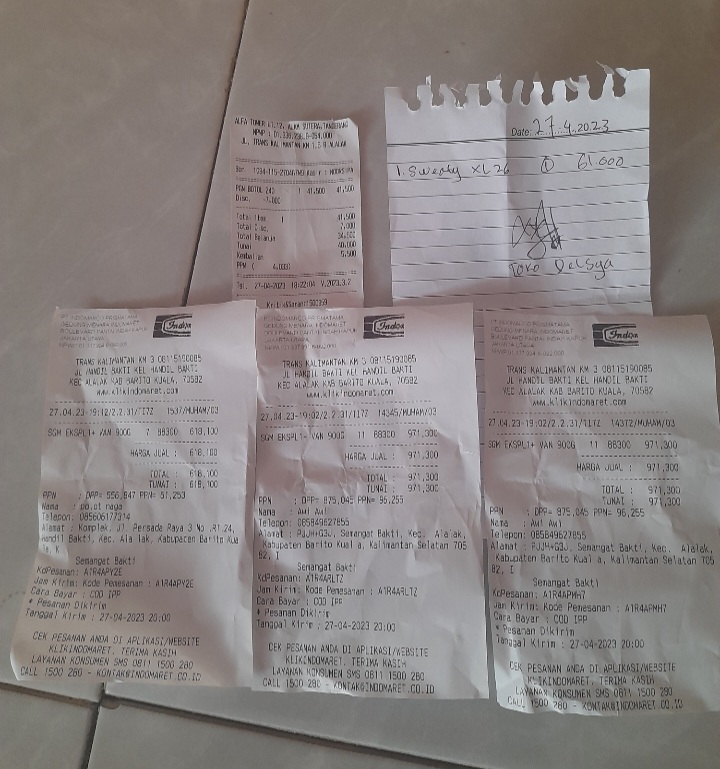 ALFA TOWER LT.12, ALAM SUTERA, TANGERANG
JL. TRANS KALIMANTAN KM 1.5 8 ALALAK
1 41,500 41,500
Disc. -7.000
Total Item 1 41,500
Total Disc. 7.000
Total Belanja 34,500
Tunai 40.000
Kembalian 5.500
PPN ( 4.000)
Tgl. 27-04-2023 18:22:04 V.2023.3.2
Date: 27.4.2023
1. Sweety XL 26 ① 61.000
Toko Delsya
Indomaret
TRANS KALIMANTAN KM 3 08115190085
JL HANDIL BAKTI KEL HANDIL BAKTI
KEC ALALAK KAB BARITO KUALA, 70582
www.klikindomaret.com
27.04.23-19:12/2.2.31/TI7Z /MUHAM/03
SGM EKSPL1+ VAN 900G 7 88300 618,100
HARGA JUAL : 618,100
TOTAL : 618,100
TUNAI : 618,100
PPN : DPP= 556,847 PPN= 61,253
Nama :
Telepon: 085606177314
Alamat : Komplek. Jl. Persada Raya 3 No .Rt.24,
Handil Bakti, Kec. Alalak, Kabupaten Barito Kua
la, K
Semangat Bakti
KdPesanan: A1R4APY2E
Jam Kirim: Kode Pemesanan : A1R4APY2E
Cara Bayar : COD IPP
* Pesanan Dikirim
Tanggal Kirim : 27-04-2023 20:00
CEK PESANAN ANDA DI APLIKASI/WEBSITE
KLIKINDOMARET. TERIMA KASIH
LAYANAN KONSUMEN SMS 0811 1500 280
CALL 1500 280 - KONTAK@INDOMARET.CO.ID
Indomaret
TRANS KALIMANTAN KM 3 08115190085
JL HANDIL BAKTI KEL HANDIL BAKTI
KEC ALALAK KAB BARITO KUALA, 70582
www.klikindomaret.com
27.04.23-19:02/2.2.31/TI7Z 14345/MUHAM/03
SGM EKSPL1+ VAN 900G 11 88300 971,300
HARGA JUAL : 971,300
TOTAL : 971,300
TUNAI : 971,300
PPN : DPP= 875,045 PPN= 96,255
Nama : Awi Awi
Telepon: 085849627855
Alamat : PJJH+G3J, Semangat Bakti, Kec. Alalak,
Kabupaten Barito Kuala, Kalimantan Selatan 705
82, I
Semangat Bakti
KdPesanan: A1R4ARLTZ
Jam Kirim: Kode Pemesanan : A1R4ARLTZ
Cara Bayar : COD IPP
* Pesanan Dikirim
Tanggal Kirim : 27-04-2023 20:00
CEK PESANAN ANDA DI APLIKASI/WEBSITE
KLIKINDOMARET. TERIMA KASIH
LAYANAN KONSUMEN SMS 0811 1500 280
CALL 1500 280 - KONTAK@INDOMARET.CO.ID
Indomaret
TRANS KALIMANTAN KM 3 08115190085
JL HANDIL BAKTI KEL HANDIL BAKTI
KEC ALALAK KAB BARITO KUALA, 70582
www.klikindomaret.com
27.04.23-19:02/2.2.31/TI7Z 14372/MUHAM/03
SGM EKSPL1+ VAN 900G 11 88300 971,300
HARGA JUAL : 971,300
TOTAL : 971,300
TUNAI : 971,300
PPN : DPP= 875,045 PPN= 96,255
Nama : Awi Awi
Telepon: 085849627855
Alamat : PJJH+G3J, Semangat Bakti, Kec. Alalak,
Kabupaten Barito Kuala, Kalimantan Selatan 705
82, I
Semangat Bakti
KdPesanan: A1R4APMH7
Jam Kirim: Kode Pemesanan : A1R4APMH7
Cara Bayar : COD IPP
* Pesanan Dikirim
Tanggal Kirim : 27-04-2023 20:00
CEK PESANAN ANDA DI APLIKASI/WEBSITE
KLIKINDOMARET. TERIMA KASIH
LAYANAN KONSUMEN SMS 0811 1500 280
CALL 1500 280 - KONTAK@INDOMARET.CO.ID